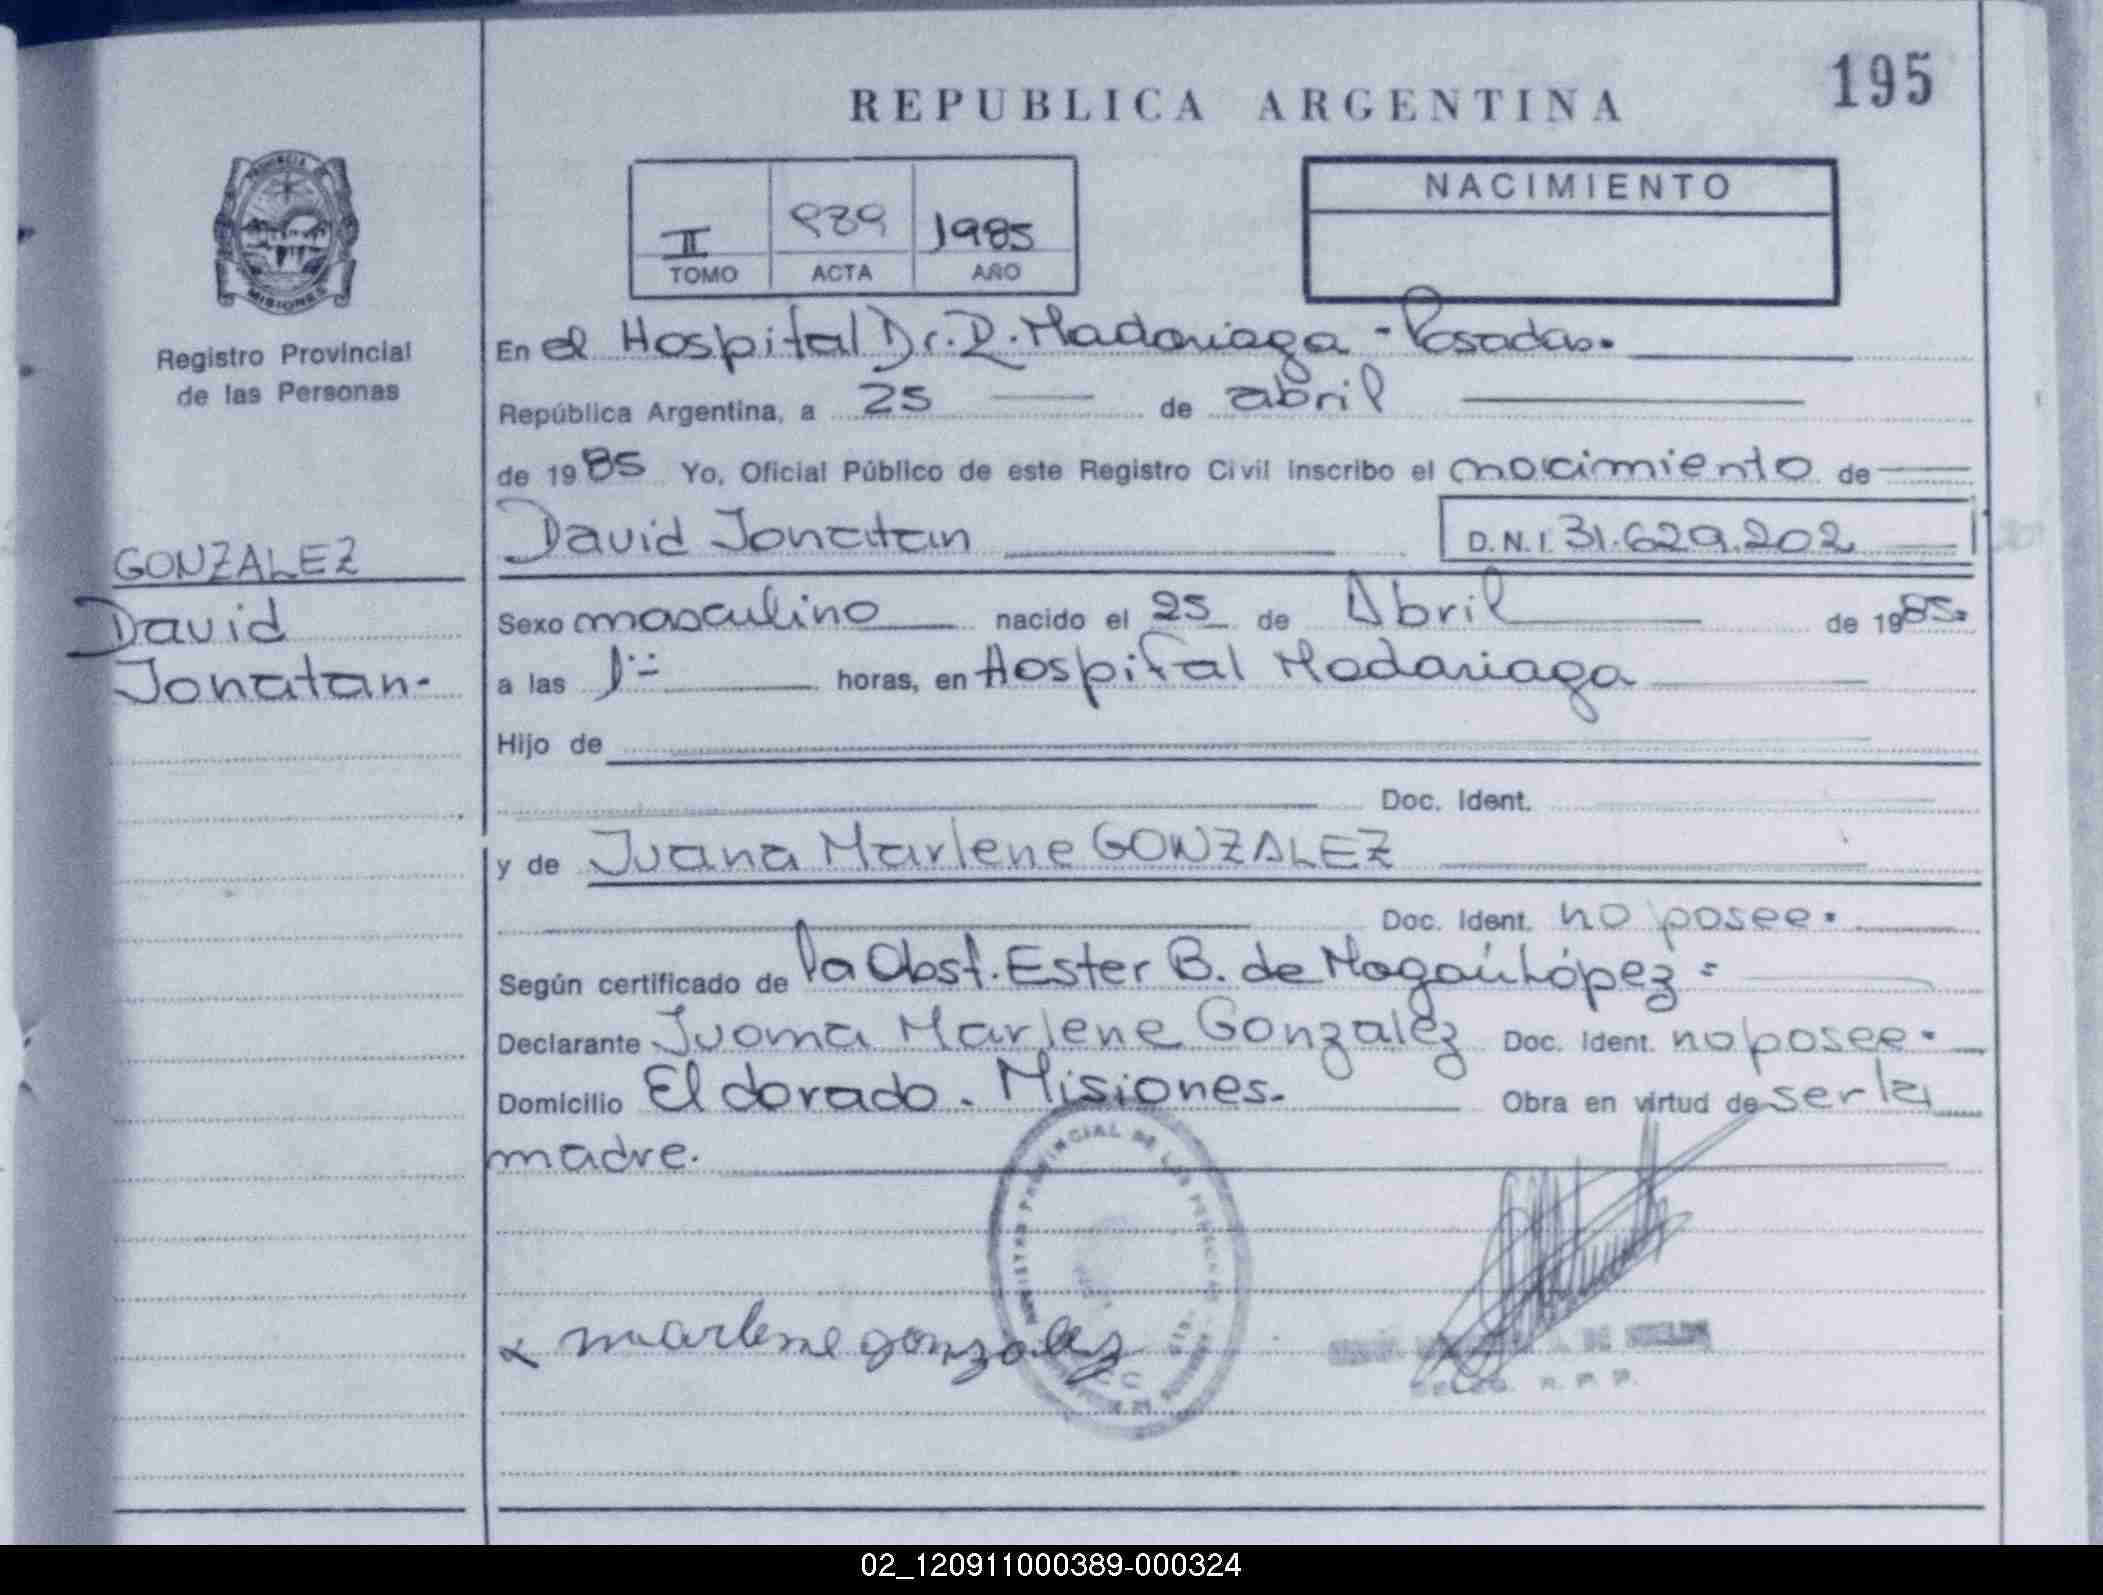 195
REPUBLICA ARGENTINA
PROVINCIA
MISIONES
Registro Provincial
de las Personas
II 989 1985
TOMO ACTA AÑO
NACIMIENTO
En el Hospital Dr. R. Madariaga - Posadas.
República Argentina, a 25 de abril
de 1985 Yo, Oficial Público de este Registro Civil inscribo el nacimiento de
GONZALEZ
David
Jonatan-
David Jonatan D.N.I. 31.629.202
Sexo masculino nacido el 25 de Abril de 1985.
a las 1 horas, en Hospital Madariaga
Hijo de
Doc. Ident.
y de Juana Marlene GONZALEZ
Doc. Ident. no posee.
Según certificado de la Obst. Ester B. de
Declarante Juana Marlene Gonzalez Doc. Ident. no posee.
Domicilio El dorado. Misiones. Obra en virtud de ser la
madre.
PROVINCIAL DE LAS PERSONAS
x marlene gonzalez
02_120911000389-000324